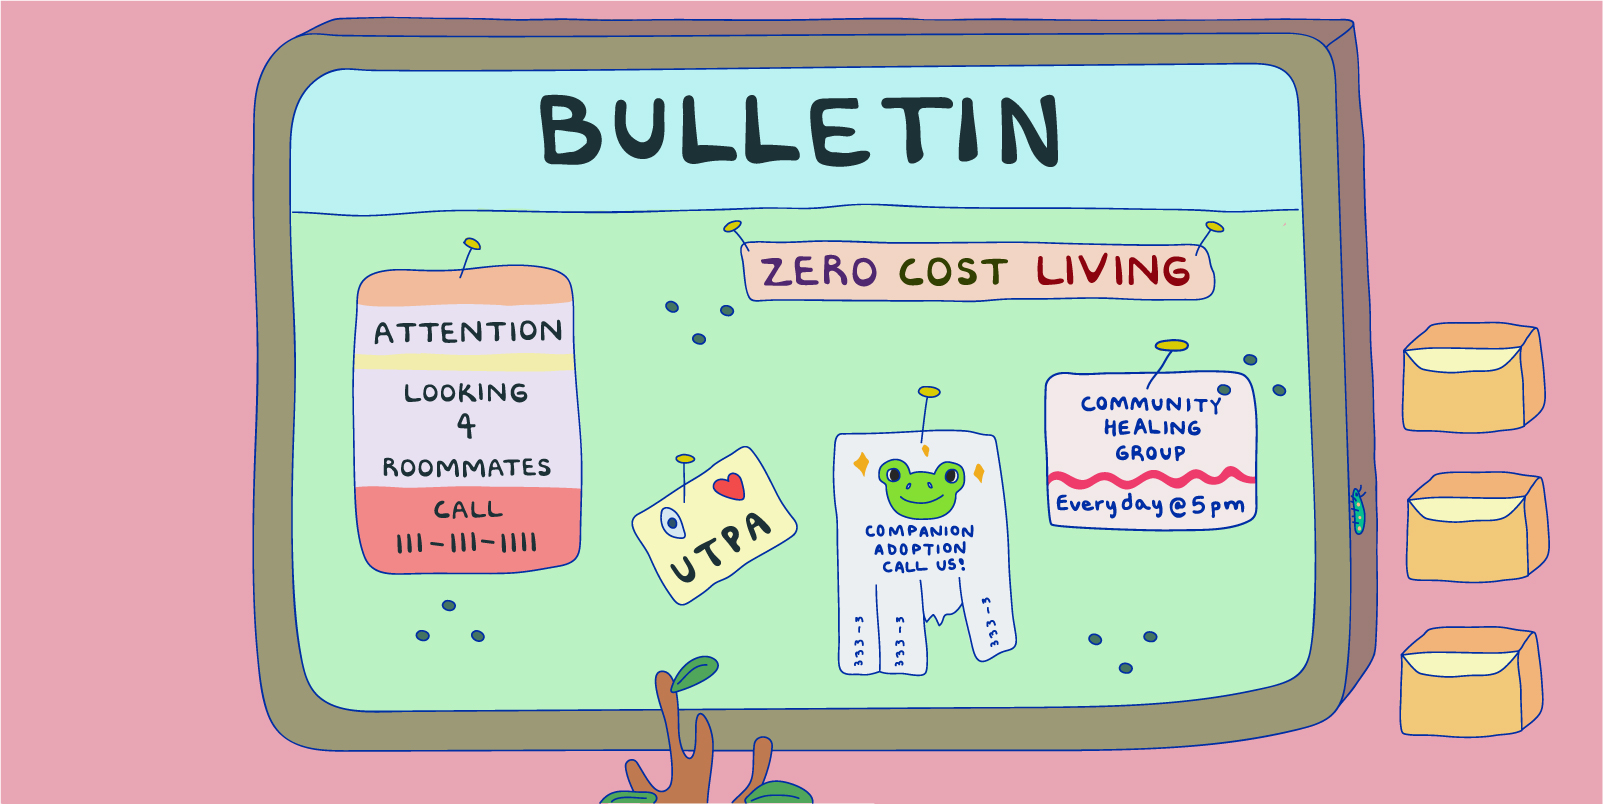 BULLETIN
ZERO COST LIVING
ATTENTION
LOOKING
4
ROOMMATES
CALL
111-111-1111
UTPA
COMPANION
ADOPTION
CALL US!
333-3
333-3
333-3
COMMUNITY
HEALING
GROUP
Everyday @ 5pm